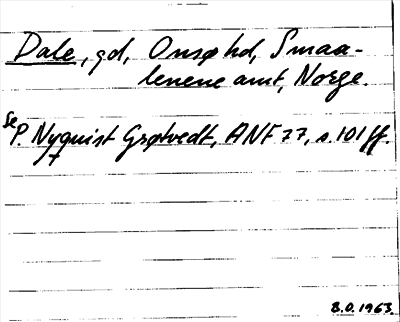 Dale, gd, Onsø hd, Smaa-
lenene amt, Norge.
Se P. Nyquist Grøtvedt, ANF 77, s. 101 ff.
B.O. 1963.